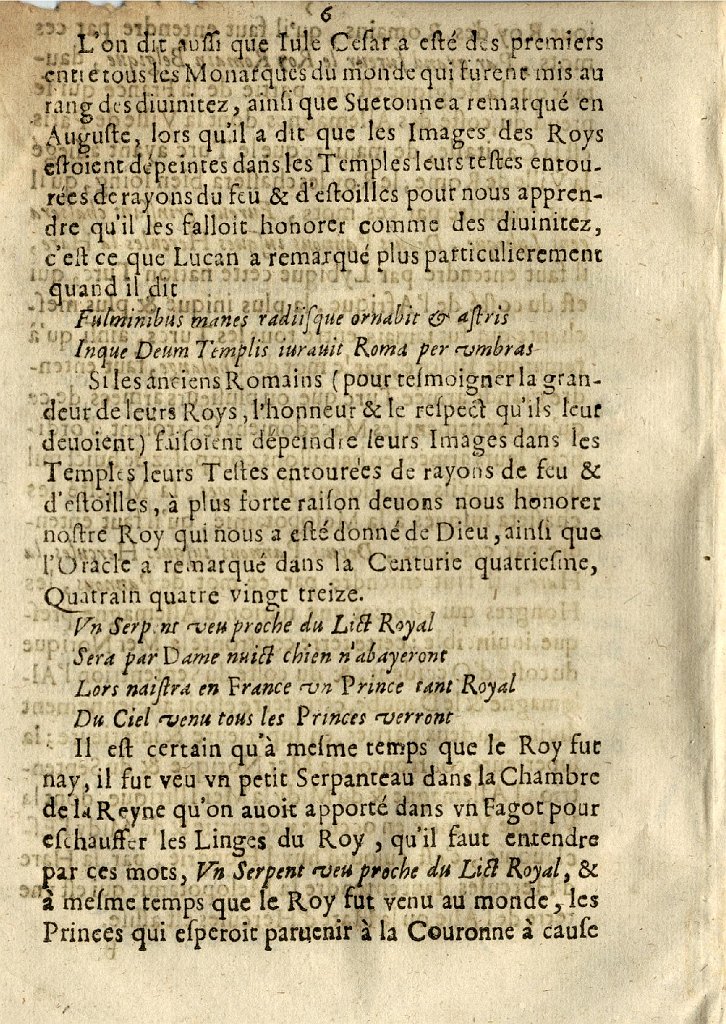 6
L'on dit aussi que Iule Cesar a esté des premiers
entre tous les Monarques du monde qui furent mis au
rang des diuinitez, ainsi que Suetonne a remarqué en
Auguste, lors qu'il a dit que les Images des Roys
estoient dépeintes dans les Temples leurs testes entou-
rées de rayons du feu & d'estoilles pour nous appren-
dre qu'il les falloit honorer comme des diuinitez,
c'est ce que Lucan a remarqué plus particulierement
quand il dit
Fulminibus manes radiisque ornabit & astris
Inque Deum Templis iurauit Roma per vmbras
Si les anciens Romains (pour tesmoigner la gran-
deur de leurs Roys, l'honneur & le respect qu'ils leur
deuoient) faisoient dépeindre leurs Images dans les
Temples leurs Testes entourées de rayons de feu &
d'estoilles, à plus forte raison deuons nous honorer
nostre Roy qui nous a esté donné de Dieu, ainsi que
l'Oracle a remarqué dans la Centurie quatriesme,
Quatrain quatre vingt treize.
Vn Serpent veu proche du Lict Royal
Sera par Dame nuict chien n'abayeront
Lors naistra en France vn Prince tant Royal
Du Ciel venu tous les Princes verront
Il est certain qu'à mesme temps que le Roy fut
nay, il fut veu vn petit Serpanteau dans la Chambre
de la Reyne qu'on auoit apporté dans vn Fagot pour
eschauffer les Linges du Roy, qu'il faut entendre
par ces mots, Vn Serpent veu proche du Lict Royal, &
à mesme temps que le Roy fut venu au monde, les
Princes qui esperoit paruenir à la Couronne à cause